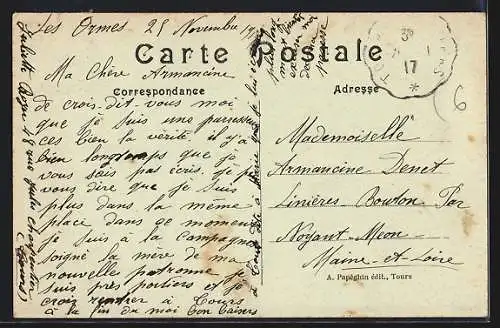 Les Ormes 25 Novembre 17
Carte Postale
Correspondance
Adresse
Ma Chère Armancine
je crois dit vous moi
que je suis une paresseuse
ces bien la verité il y'a
bien longtemps que je
vous sais pas ecris. je
vous dire que je suis
plus dans la même
place dans se moment
je suis à la Campagne
soigné la mère de ma
nouvelle patronne je
suis pres
crois rentrer à Tours
à la fin du moi bon baisers
Mademoiselle
Armancine Denet
Linières Bouton Par
Noyant-Meon
Maine-et-Loire
A. Papeghin édit., Tours
17
6
Juliette
48 rue Jules Charpentier
(Tours)
plus tard